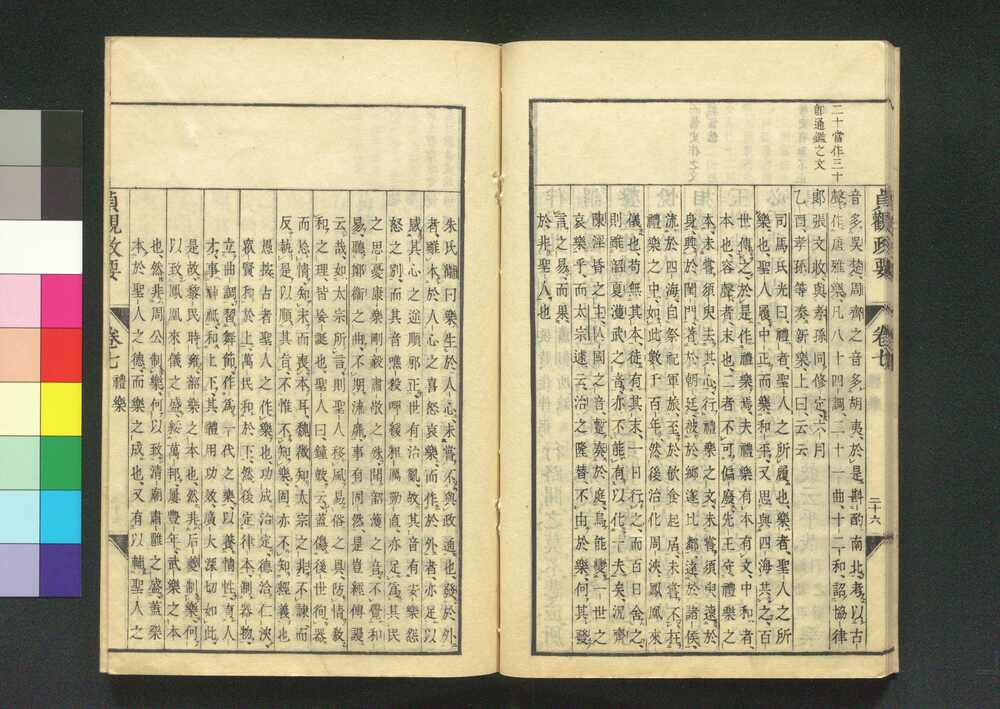 二十當作三十
即通鑑之文
音多吳楚周齊之音多胡夷於是斟酌南北考以古
聲作唐雅樂凡八十四調三十一曲十二和詔協律
郎張文收與孝孫同修定六月
乙酉孝孫等奏新樂上曰云云
司馬氏光曰禮者聖人之所履也樂者聖人之所
樂也聖人履中正而樂和平又思與四海共之百
世傳之於是作禮樂焉夫禮樂有本有文中和者
本也容聲者末也二者不可偏廢先王守禮樂之
本未嘗須臾去其心行禮樂之文未嘗須臾遠於
身興於閨門著於朝廷被於鄉遂比鄰達於諸侯
流於四海自祭祀軍旅至於飲食起居未嘗不在
禮樂之中如此數十百年然後治化周浹鳳凰來
儀也苟無其本徒有其末一日行之而百日舍之
則雖韶夏濩武之音亦不能有以化一夫矣況齊
陳淫昏之主亡國之音暫奏於庭烏能變一世之
哀樂乎而太宗遽云治之隆替不由於樂何其發
言之易而果
於非聖人也
貞觀政要
卷七
二十六
朱氏黼曰樂生於人心未嘗不與政通也發於外
者雖本於人心之喜怒哀樂而作於外者亦足以
感其心之逆順邪正世有治亂故其音有安樂怨
怒之別而其音噍殺嘽緩粗厲勁直亦足為其民
之思憂康樂剛毅肅敬之候聞韶濩之音不覺和
易聽鄭衛之曲不期流靡事有固然是豈經傳謾
云哉如太宗所言則聖人移風易俗之具防情教
和之理皆矣誕也聖人曰鐘鼓云云蓋傷後世徇器
而忘情知末而喪本耳魏徵知太宗之非不諫而
反執是以順其旨不惟不知樂固亦不知經義也
愚按古者聖人之作樂也功成治定德洽仁浹
眾賢和於上萬民和於下然後定律本制器物
立曲調習舞節作為一代之樂以養情性育人
才事神祇和上下其體用功效廣大深切如此
是故黎民時雍韶樂之本也然非后夔制樂何
以致鳳凰來儀之盛綏萬邦屢豐年武樂之本
也然非周公制樂何以致清廟肅雝之盛蓋樂
本於聖人之德而樂之成也又有以輔聖人之
貞觀政要
卷七
禮樂